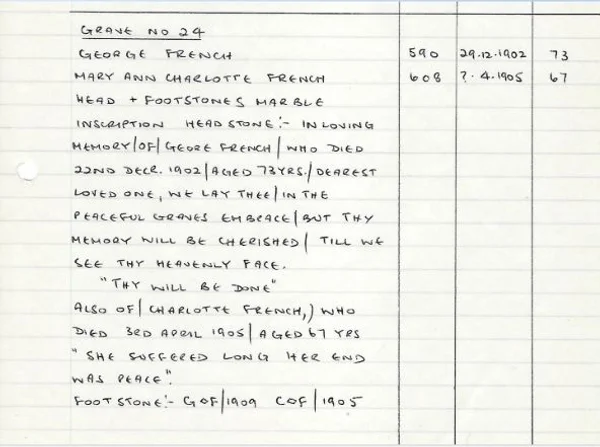 GRAVE NO 24
GEORGE FRENCH 590 29.12.1902 73
MARY ANN CHARLOTTE FRENCH 608 ?.4.1905 67
HEAD + FOOTSTONES MARBLE
INSCRIPTION HEADSTONE:- IN LOVING
MEMORY/OF/GEORE FRENCH/WHO DIED
22ND DECR. 1902/AGED 73YRS./DEAREST
LOVED ONE, WE LAY THEE/IN THE
PEACEFUL GRAVES EMBRACE/BUT THY
MEMORY WILL BE CHERISHED/TILL WE
SEE THY HEAVENLY FACE.
"THY WILL BE DONE"
ALSO OF/CHARLOTTE FRENCH,/WHO
DIED 3RD APRIL 1905/AGED 67 YRS
"SHE SUFFERED LONG HER END
WAS PEACE".
FOOTSTONE:- GOF/1909 COF/1905